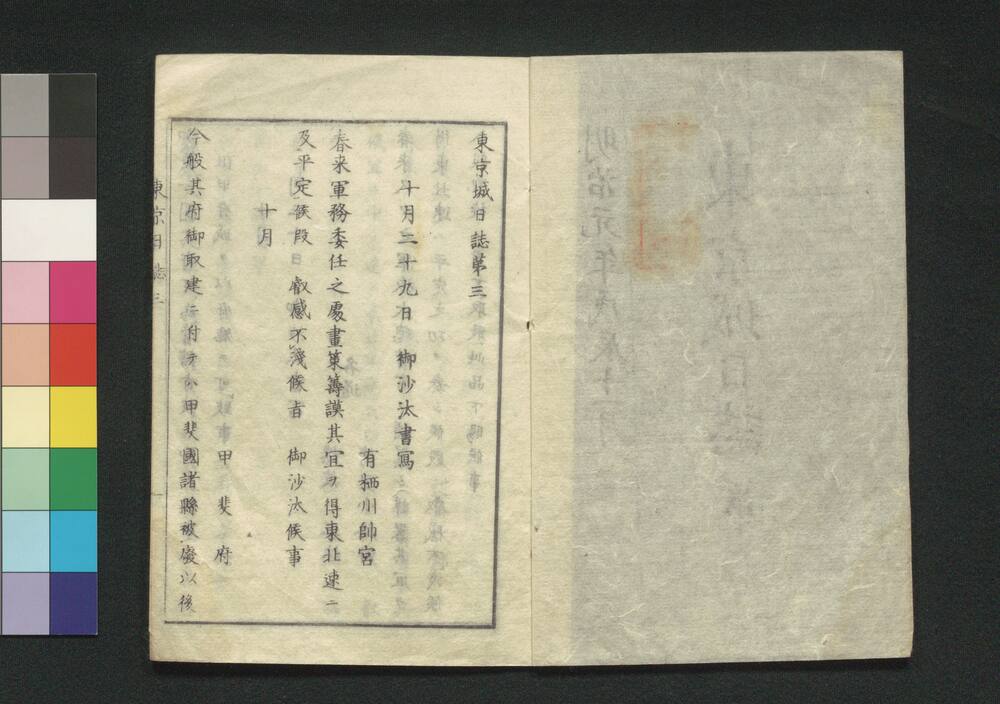 東京城日誌第三
十月二十九日御沙汰書寫
有栖川帥宮
春来軍務委任之處畫策籌謨其宜ヲ得東北速ニ
及平定候段日 叡感不淺候旨 御沙汰候事
十月
甲斐府
今般其府御取建ニ付テハ甲斐國諸縣被廢以後
東京日誌三
明治元年戊辰十月